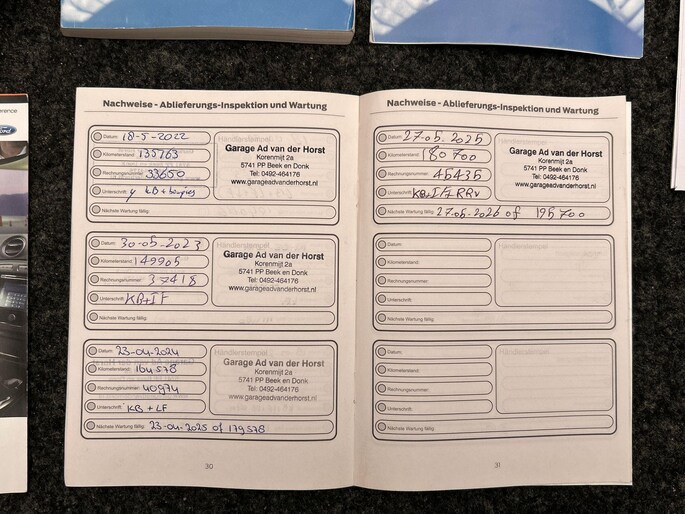 erence
Ford
Nachweise - Ablieferungs-Inspektion und Wartung
Datum: 18-5-2022
Kilometerstand: 135763
Rechnungsnummer: 33650
Unterschrift: KB +
Nächste Wartung fällig:
Händlerstempel
Garage Ad van der Horst
Korenmijt 2a
5741 PP Beek en Donk
Tel: 0492-464176
www.garageadvanderhorst.nl
Datum: 30-05-2023
Kilometerstand: 149905
Rechnungsnummer: 37418
Unterschrift: KB+IF
Nächste Wartung fällig:
Händlerstempel
Garage Ad van der Horst
Korenmijt 2a
5741 PP Beek en Donk
Tel: 0492-464176
www.garageadvanderhorst.nl
Datum: 23-04-2024
Kilometerstand: 164578
Rechnungsnummer: 40974
Unterschrift: KB + LF
Nächste Wartung fällig: 23-04-2025 of 179578
Händlerstempel
Garage Ad van der Horst
Korenmijt 2a
5741 PP Beek en Donk
Tel: 0492-464176
www.garageadvanderhorst.nl
30
Nachweise - Ablieferungs-Inspektion und Wartung
Datum: 27-05-2025
Kilometerstand: 180700
Rechnungsnummer: 45435
Unterschrift: KB+IF+RRV
Nächste Wartung fällig: 27-05-2026 of 195700
Garage Ad van der Horst
Korenmijt 2a
5741 PP Beek en Donk
Tel: 0492-464176
www.garageadvanderhorst.nl
Datum:
Kilometerstand:
Rechnungsnummer:
Unterschrift:
Nächste Wartung fällig:
Händlerstempel
Datum:
Kilometerstand:
Rechnungsnummer:
Unterschrift:
Nächste Wartung fällig:
Händlerstempel
31